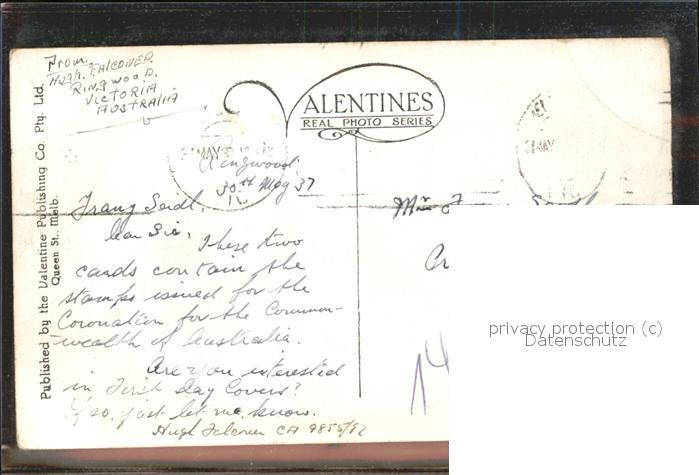 From
Hugh. FALCONER.
RINGWOOD.
VICTORIA
AUSTRALIA
VALENTINES
REAL PHOTO SERIES
Published by the Valentine Publishing Co. Pty. Ltd.
Queen St., Melb.
31 MAY
31 MAY
Ringwood,
30th May 37
Franz Seidl,
Dear Sir,
These two
cards contain the
stamps issued for the
Coronation for the Common-
wealth of Australia.
Are you interested
in First day Covers?
If so, just let me know.
Hugh Falconer CA 9855/82
14
privacy protection (c)
Datenschutz